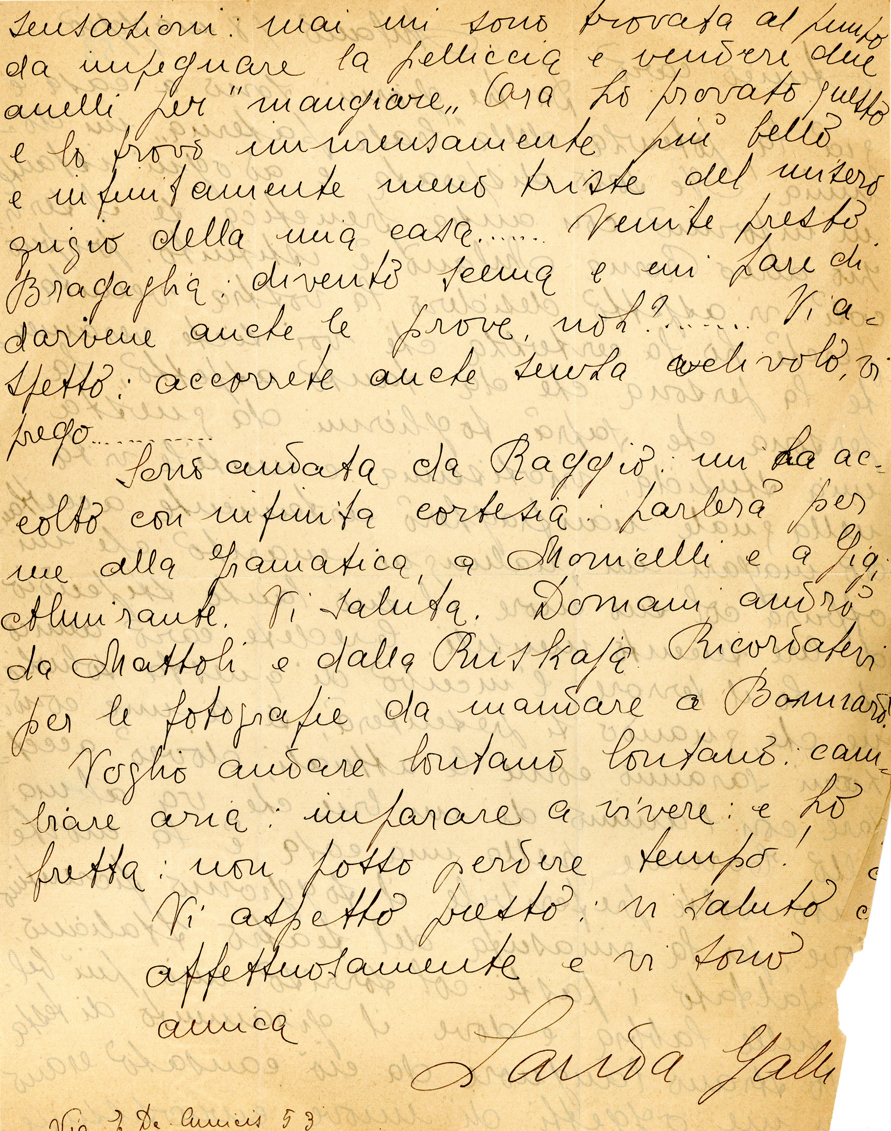 sensazioni: mai mi sono trovata al punto
da impegnare la pelliccia e vendere due
anelli per "mangiare" Ora ho provato questo
e lo trovo immensamente più bello
e infinitamente meno triste del misero
grigio della mia casa...... Venite presto
Bragaglia: divento scema e mi pare di
darvene anche le prove, noh?........ Vi a-
spetto: accorrete anche senza velivolo, vi
prego............
Sono andata da Raggio: mi ha ac-
colto con infinita cortesia: parlerà per
me alla Gramatica, a Monicelli e a Gigi
Almirante. Vi saluta. Domani andrò
da Mattoli e dalla Ruskaja Ricordatevi
per le fotografie da mandare a Bonnard!
Voglio andare lontano lontano: cam-
biare aria: imparare a vivere: e ho
fretta: non posso perdere tempo!
Vi aspetto presto: vi saluto
affettuosamente e vi sono
amica
Landa Galli
Via E De Amicis 53